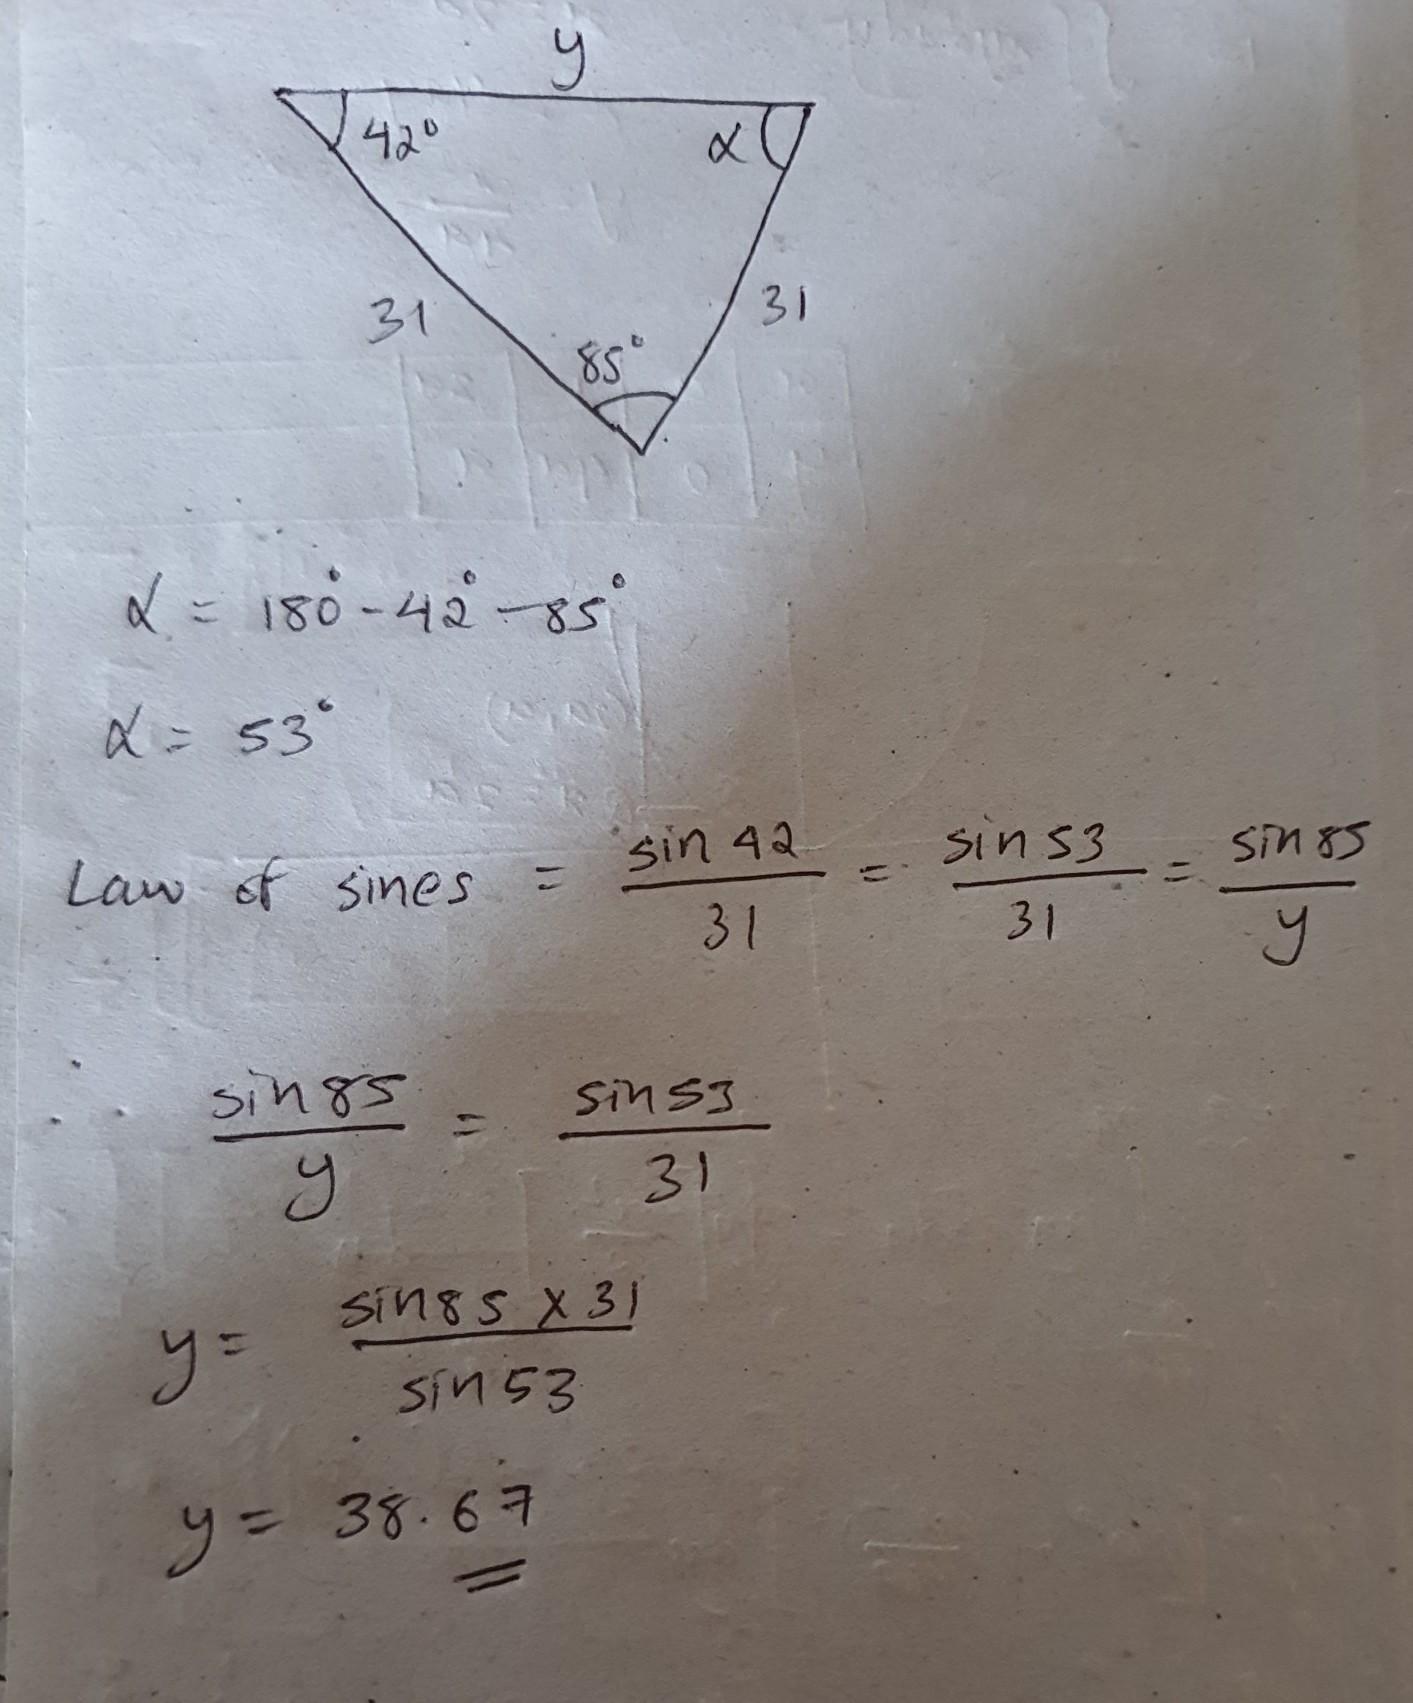 y
42° α
31 31
85°
α = 180° - 42° - 85°
α = 53°
Law of sines = sin 42/31 = sin 53/31 = sin 85/y
sin 85/y = sin 53/31
y = sin 85 x 31/sin 53
y = 38.67